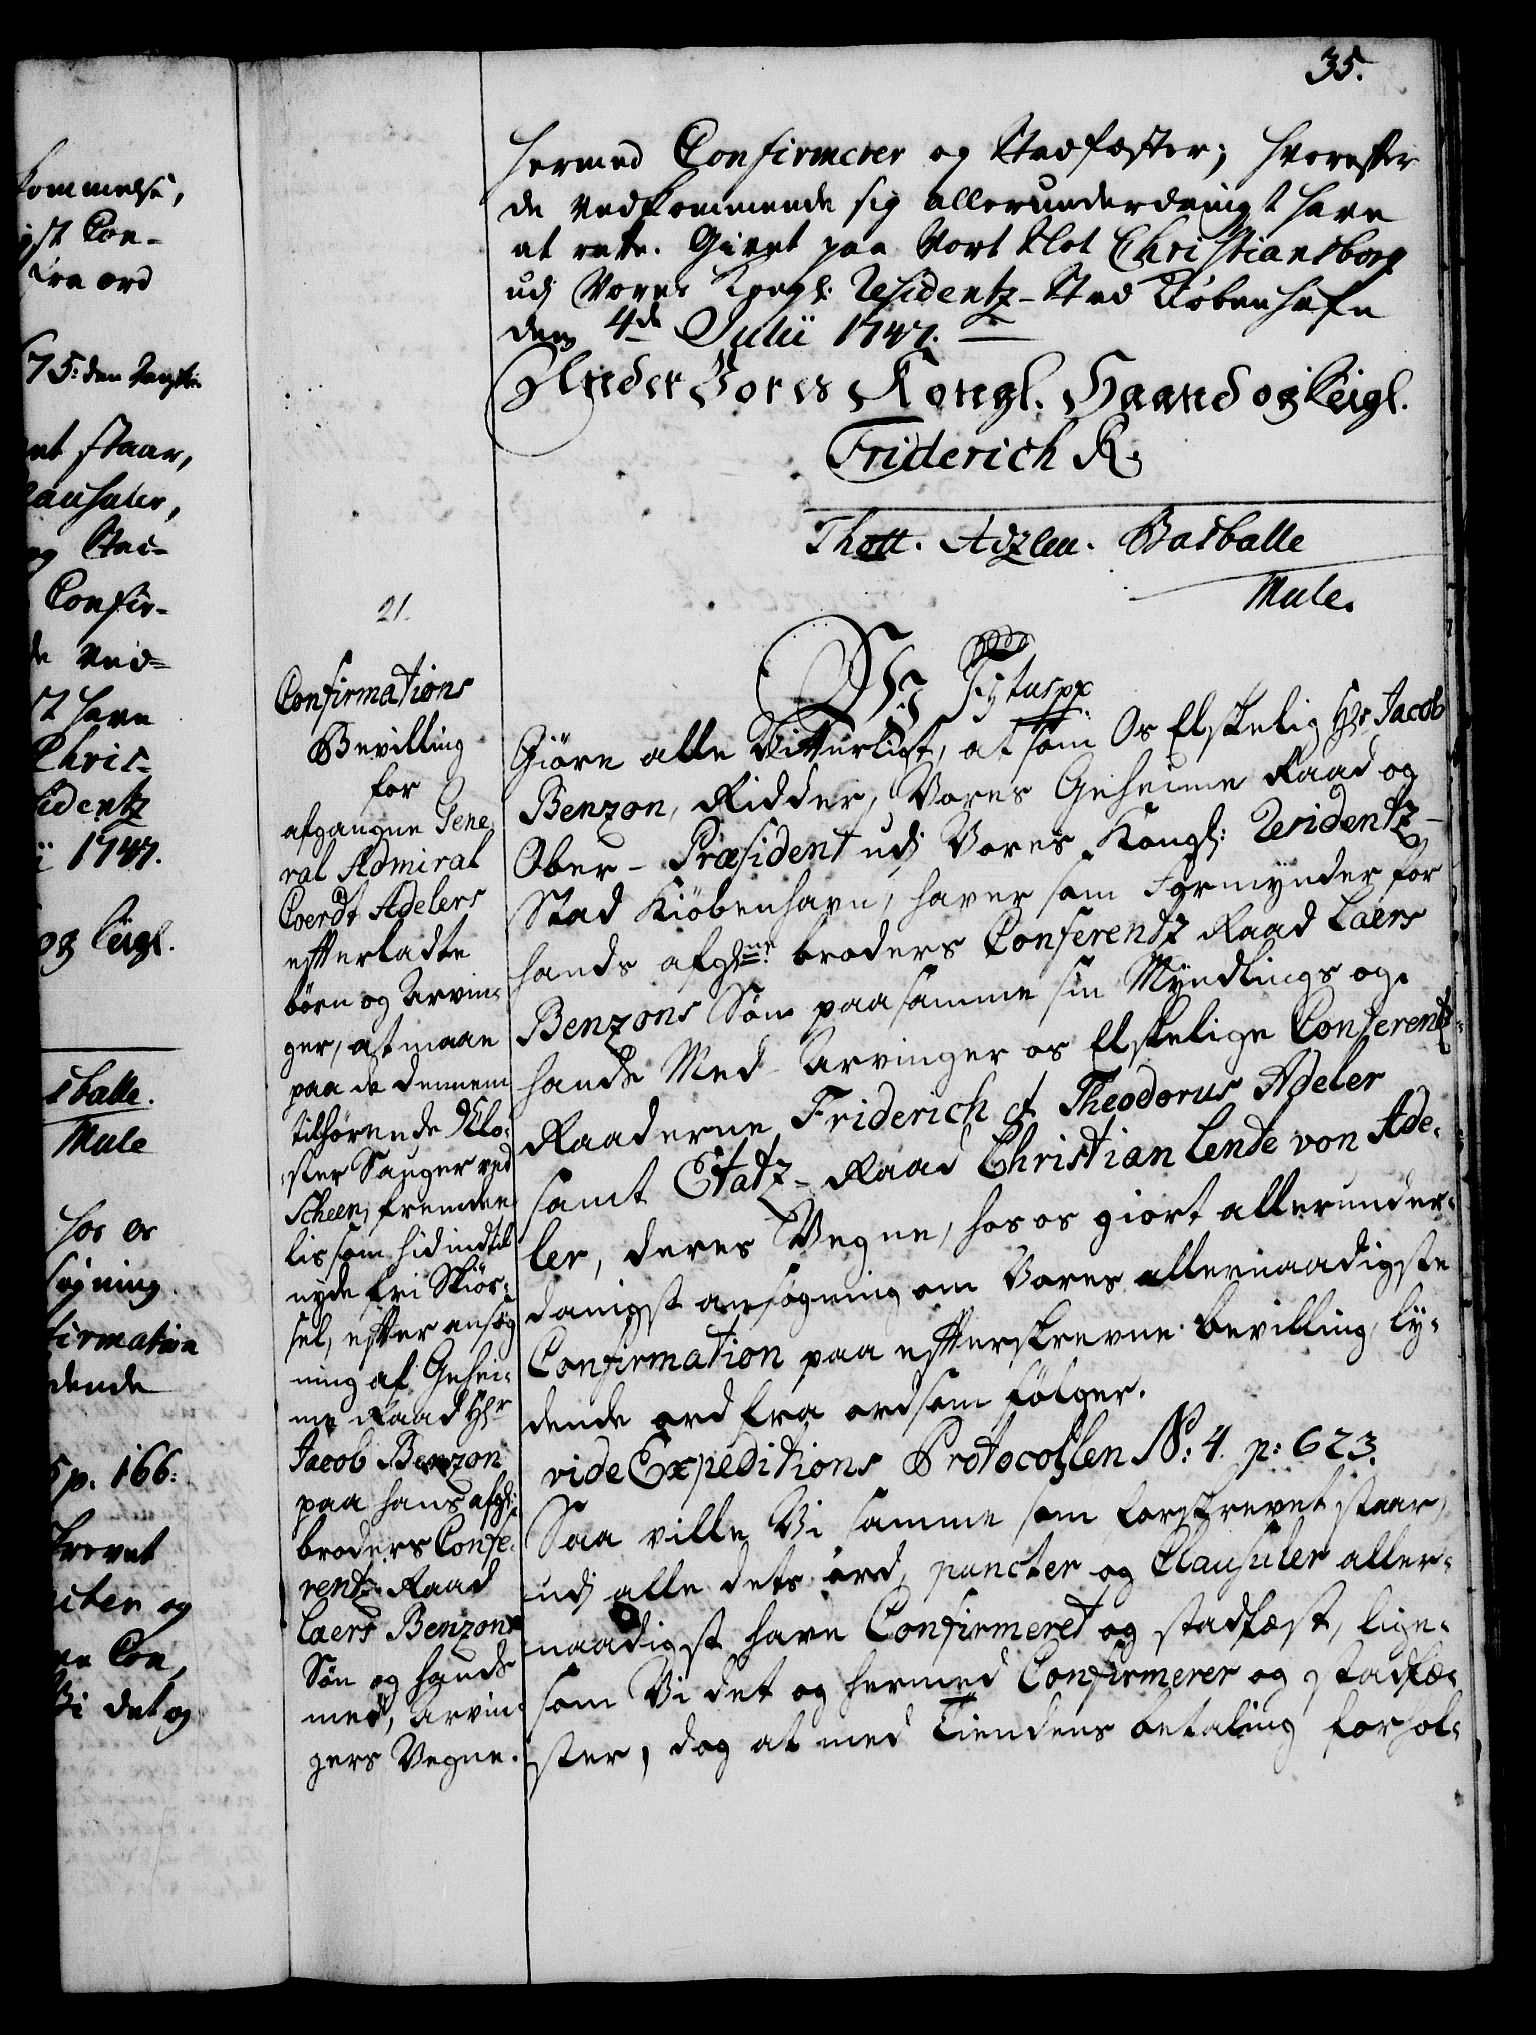 35.
kommelse,
gst Con-
fra ord
675: den
et staar,
Clausuler,
og Sta-
Confir-
de Ved-
st have
Chris-
sidentz
1747.
og Seigl.
sballe.
Mule
hos os
søgning
firmation
dende
p. 166:
skrevet
ncter og
Con,
Vi det og
hermed Confirmerer og Stadfæster; hvorefter
de Vedkommende sig allerunderdanigst have
at rette. Givet paa Vort Slot Christiansborg
udj Vores Kongl: Residentz-Stad Kiøbenhafn
den 4de Julii 1747.
Under Vores Kongl. Haand og Seigl.
Friderich R.
Thott. Adzleu. Basballe
Mule.
21.
Confirmations
Bevilling
for
afgangne Gene
ral Admiral
Coerdt Adelers
efterladte
børn og Arvin-
ger, at maae
paa de dennem
tilhørende Klo-
ster Sauger ved
Scheen, fremde-
lis som hidindtil
nyde fri Skiør-
sel, efter ansøg
ning af Gehei-
me Raad Hr
Jacob Benzon
paa hans afgl:
broders Confe-
rentz-Raad
Laers Benzons
Søn og hands
med, Arvin-
gers Vegne.
Vj Fr: 5tus pp.
Giøre alle Vitterligt, at som Os Elskelig Hr Jacob
Benzon, Ridder, Vores Geheime Raad og
Ober-Præsident udj Vores Kongl: Residentz-
Stad Kiøbenhavn, haver som Formynder for
hands afgl:ne broders Conferentz Raad Laers
Benzons Søn paa samme sin Myndlings og
hands Med-Arvinger os Elskelige Conferentz-
Raaderne Friderich & Theodorus Adeler
samt Etatz-Raad Christian Lente von Ade-
ler, deres Vegne, hos os giort allerunder-
danigst ansøgning om Vores allernaadigste
Confirmation paa efterskrevne bevilling, ly-
dende ord fra ord som følger.
vide Expeditions Protocollen No: 4. p: 623.
Saa ville Vi samme som forskrevet staar,
udj alle dets ord, puncter og Clausuler aller-
naadigst have Confirmeret og stadfæst, lige-
som Vi det og hermed Confirmerer og stadfæ-
ster, dog at med Tiendens betaling forhol-